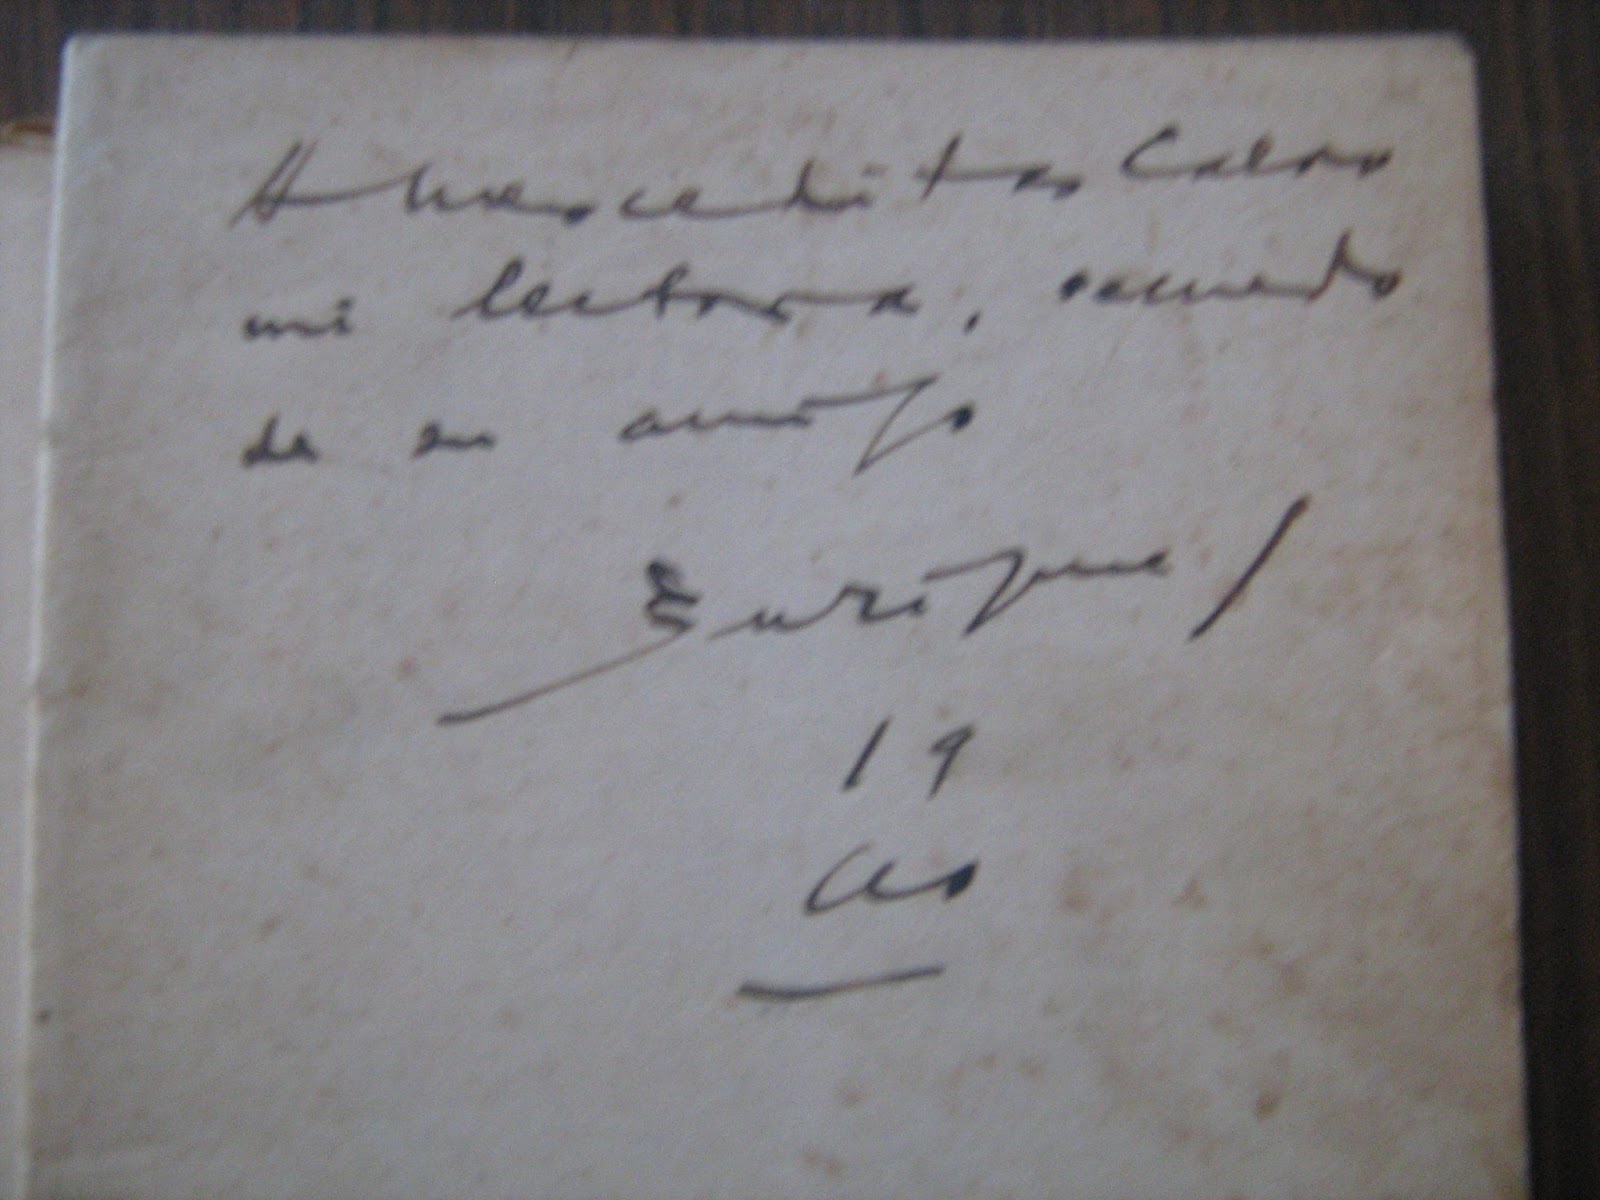 A Merceditas Calvo
mi lectora, recuerdo
de su amigo
Enrique
19
60